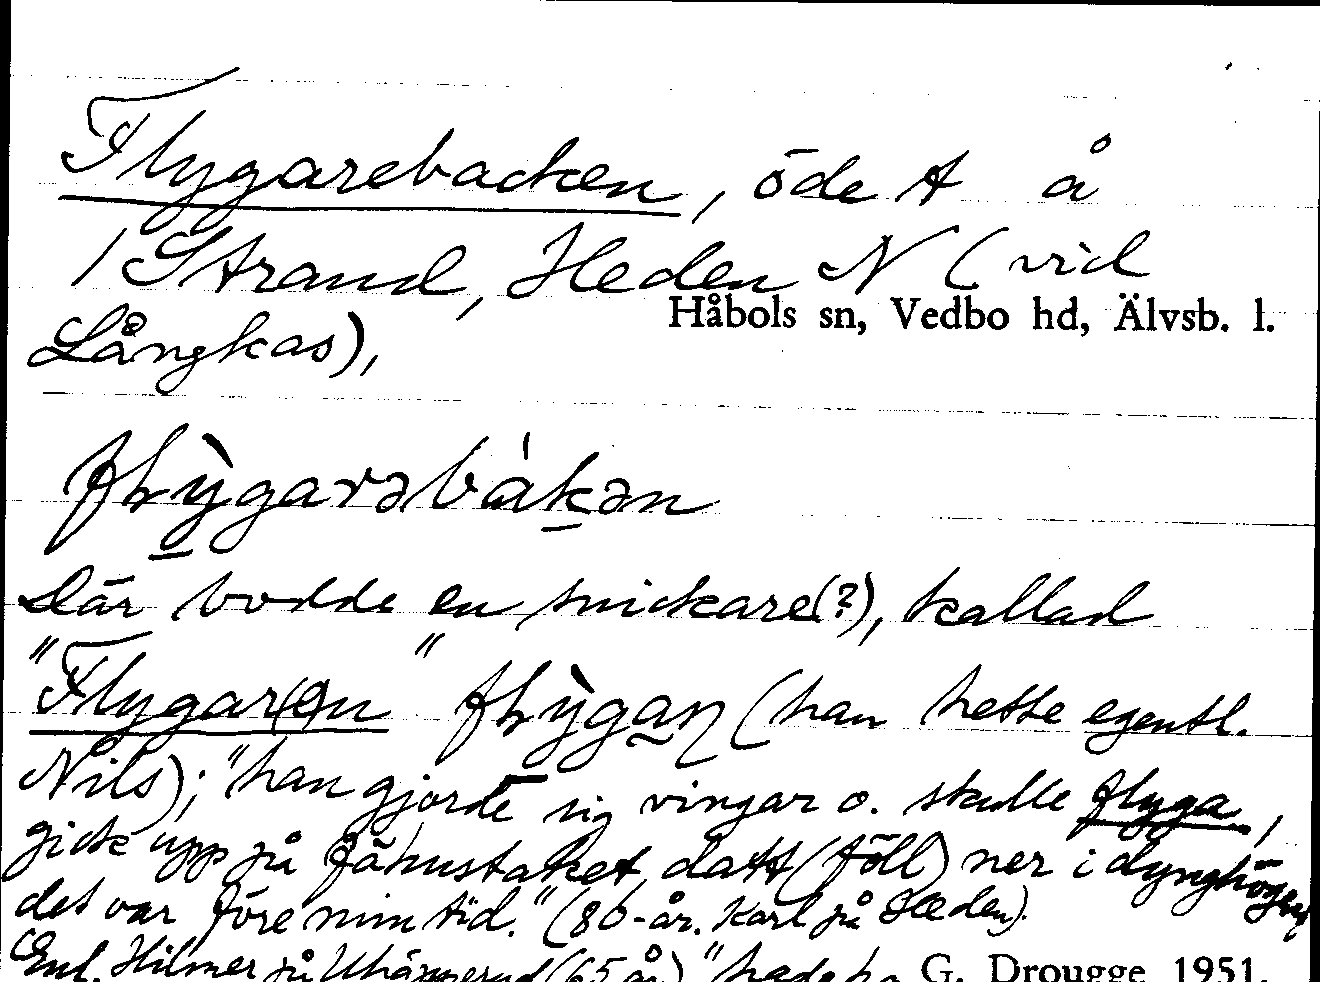 Flygarebacken, öde t å
1 Strand, Heden N (vid
Håbols sn, Vedbo hd, Älvsb. l.
Långkas),
där bodde en snickare(?), kallad
"Flygar(e)n" (han hette egentl.
Nils); "han gjorde sig vingar o. skulle flyga,
gick upp på fähustaket, datt (föll) ner i dynghögen,
det var före min tid." (80-år. Karl på Heden).
Enl. Hilmer på (65 år) "hade
G. Drougge 1951.